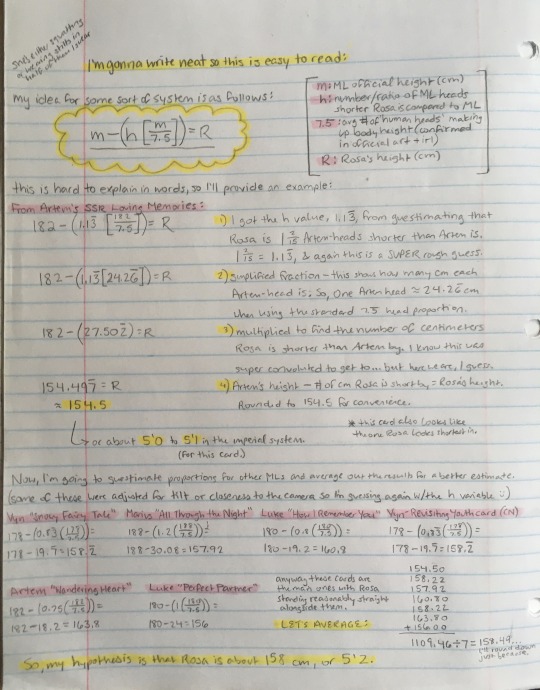 I'm gonna write neat so this is easy to read:
my idea for some sort of system is as follows:
m-(h[m/7.5])=R
m: ML official height (cm)
h: number/ratio of ML heads
shorter Rosa is compared to ML
7.5: avg # of human heads making
up body height (confirmed
in official art + irl)
R: Rosa's height (cm)
this is hard to explain in words, so I'll provide an example:
From Artem's SSR Loving Memories:
182-(1.13̅ [182/7.5])=R
1) I got the h value, 1.13̅, from guestimating that
Rosa is 1 2/15 Artem-heads shorter than Artem is.
1 2/15 = 1.13̅, & again this is a SUPER rough guess.
182-(1.13̅[24.26̅])=R
2) simplified fraction - this shows how many cm each
Artem-head is. So, One Artenhead ≈ 24.26̅ cm
when using the standard 7.5 head proportion.
182-(27.502̅)=R
3) multiplied to find the number of centimeters
Rosa is shorter than Artem by. I know this was
super convoluted to get to... but here we are, I guess.
154.497̅=R
≈ 154.5
4) Artem's height - # of cm Rosa is short by = Rosa's height.
Rounded to 154.5 for convenience.
or about 5'0 to 5'1 in the imperial system.
(for this card)
* this card also looks like
the one Rosa looks shortest in.
Now, I'm going to guestimate proportions for other MLs and average out the results for a better estimate.
(some of these were adjusted for tilt or closeness to the camera so I'm guessing again w/the h variable :)
Vyn "Snowy Fairy Tale" Marius "All Through the Night" Luke "How I Remember You" Vyn- Revisiting Youth card (CN)
178-(0.83(178/7.5))= 188-(1.2(188/7.5))= 180-(0.8(180/7.5))= 178-(0.83̅(178/7.5))=
178-19.7̅=158.2̅ 188-30.08=157.92 180-19.2=160.8 178-19.7̅=158.2̅
Artem "Wandering Heart" Luke "Perfect Partner"
182-(0.75(182/7.5))= 180-(1(180/7.5))=
182-18.2=163.8 180-24=156
anyway these cards are
the main ones with Rosa
standing reasonably straight
alongside them.
LET'S AVERAGE:
154.50
158.22
157.92
160.80
158.22
163.80
+156.00
1109.46÷7=158.49...
I'll round down
just because
So, my hypothesis is that Rosa is about 158 cm, or 5'2.